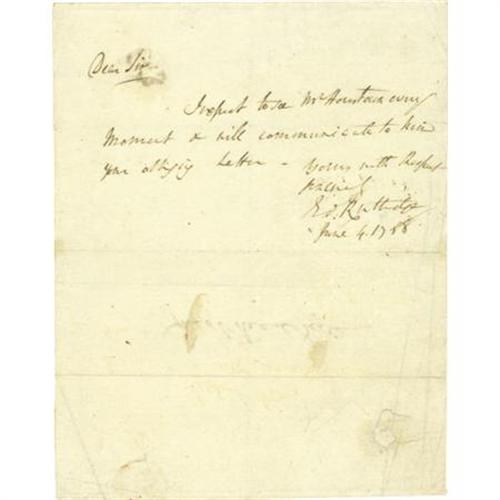 Dear Sir
I expect to see Mr Houstoun every
Moment & will communicate to him
your obliging Letter – Yours with Respect
Ed. Rutledge
June 4. 1788